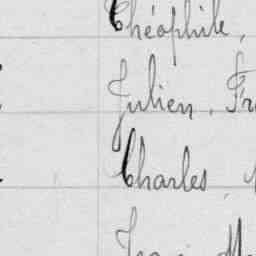 Théophile,
Julien, Fr
Charles,